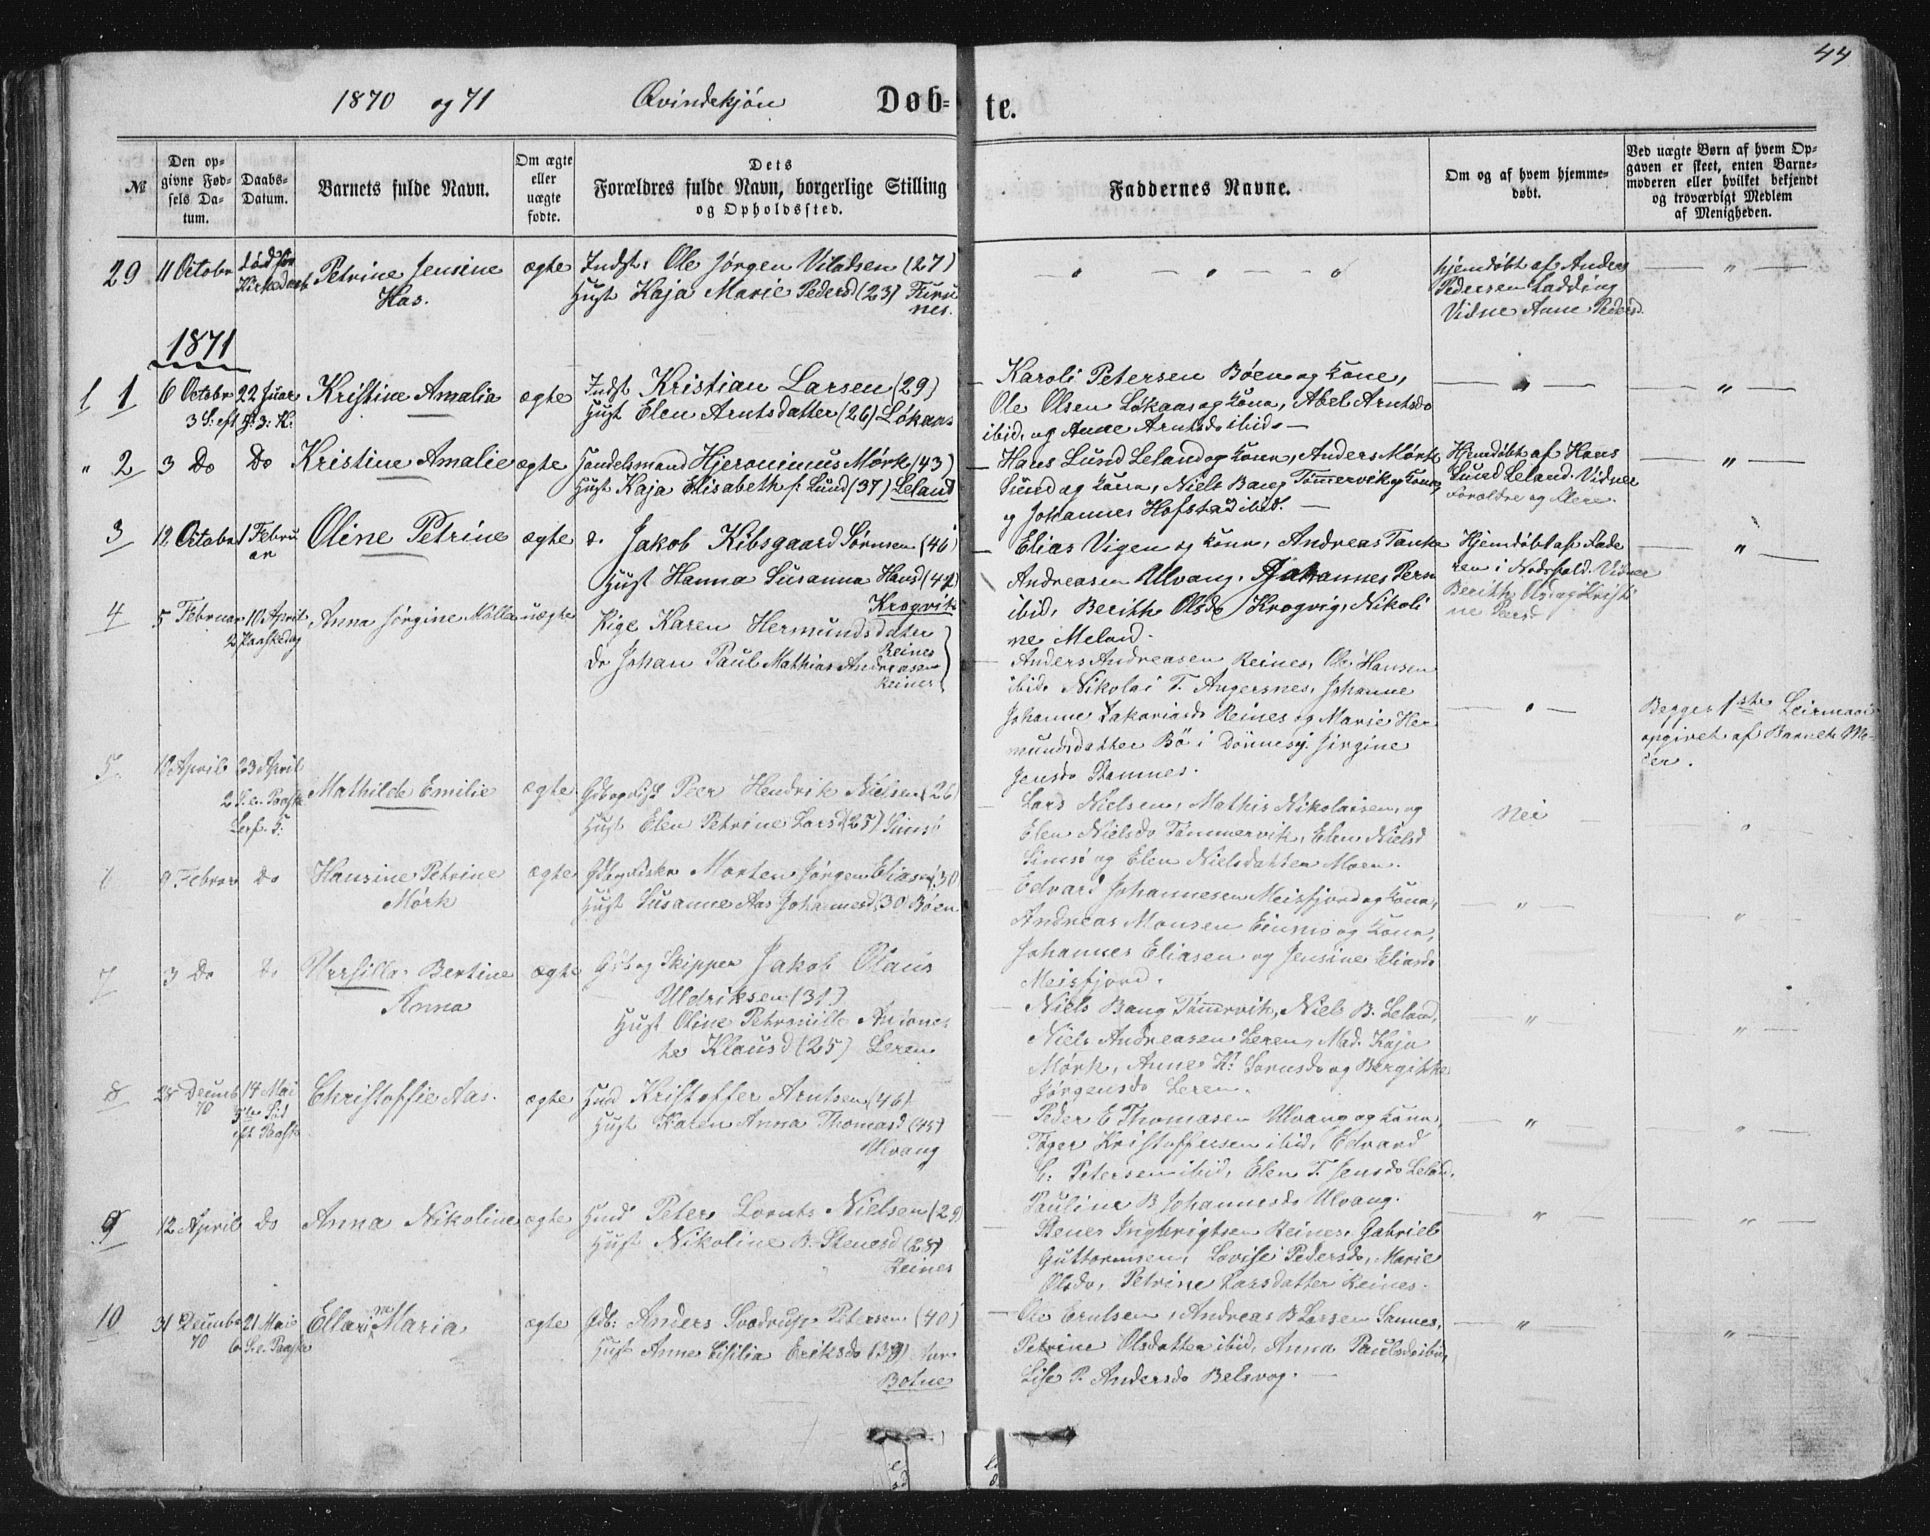 44
1870 og 71 Qvindekjön Døb-te.
№
Den opgivne Fødsels Datum.
Daabs-Datum.
Barnets fulde Navn.
Om ægte eller uægte fødte.
Dets Forældres fulde Navn, borgerlige Stilling og Opholdssted.
Faddernes Navne.
Om og af hvem hjemmedøbt.
Ved uægte Børn af hvem Opgaven er skeet, enten Barnemoderen eller hvilket bekjendt og troværdigt Medlem af Menigheden.
29 11 Octobr Død før Petrine Jensine ægte Indst: Ole Jørgen Viladsen (27)
Has. Hust Kaja Marie Pedersd (23)
hjemdøbt af Anders
Pedersen Ladding
Vidne Anne Pedersd.
1871
1 1 6 Octobr 22 Juar Kristine Amalia ægte Indst Kristian Larsen (29)
3 S: eft H. 3. K. Hust Elen Arntsdatter (26) Løkaas
Karoli Petersen Bøen og Kone,
Ole Olsen Løkaas og Kone, Abel Arntsdo
ibid, og Anne Arntsdo ibid. —
" 2 3 Do Do Kristine Amalie ægte Handelsmand Hjeronimus Mørk (43)
Hust Kaja Elisabeth f: Lund (37) Leland
Hans Lund Leland og Kone, Anders Mørk
Lund og Kone, Niels Bang Tømmervik og Kone,
og Johannes Hofstad ibid. —
Hjemdøbt af Hans
Lund Leland. Vidner
Forældre og flere
3 12 Octobr 1 Februar Oline Petrine ægte d. Jakob Kibsgaard Sørensen (46)
Hust Hanna Susanna Hansd (42)
Krogvik
Elias Vigen og Kone, Andreas Tanke
Andreasen Ulvang, Johannes Pern
ibid, Berith Olsdo Krogvig, Nikoli
ne Meland.
Hjemdøbt af Fade
ren i Nødsfald. Vidner
Berith Ols og Kristi
ne Peers.
4 5 Februar 10 April Anna Jørgine Mølla uægte Pige Karen Hermundsdater
2 Paaskedag Reines
Dr Johan Paul Mathias Andreasen
Reines
Anders Andreasen Reines, Ole Hansen
ibid, Nikolai T. Angersnes, Johanne
Johanne Zakariasdo Reines og Marie Her-
mundsdatter Bø i Dønnesø. Jirgine
Jensdo Stamnes.
Begges 1ste Leirmaal
opgivet af Barnets Mo-
der.
5. 10 April 23 April Mathilde Emilie ægte Peer Hendrik Nielsen (26)
2 S. e. Paaske Hust Elen Petrine Larsd (25)
Lars Nielsen, Mathis Nikolaisen, og
Elen Nielsdo Tømmervik, Elen Nielsd
Simsø og Elen Nielsdatter Moen.
Nei
9 Februar do Hansine Petrine ægte Morten Jørgen Eliasen (30)
Mørk Hust Susanne Aas Johannesd. 30 Bøen
Edvard Johannesen Meisfjord og Kone,
Andreas Monsen og Kone,
Johannes Eliasen og Jensine Eliasdo
Meisfjord.
7 3 Do Do Bertine ægte Gdb og Skipper Jakob Olaus
Anna Uldriksen (31)
Hust Oline Petronille
Klausd (25) Leren
Niels Bang Tømervik, Niels B. Leland,
Niels Andreasen Leren, Mad. Kaja
Mørk, Anne K: og Bergikke
Jørgensdo Leren.
8 28 Decemb 14 Mai Christoffie Aas. ægte Kristoffer Arntsen (46)
70 Hust Karen Anna Thomasd (45)
Ulvang
Peder E Thomasen Ulvang og Kone,
Kristoffersen ibid, Edvard
C. Petersen ibid, Elen T. Jensdo Leland,
Pauline B Johannesdo Ulvang.
9 12 April do Anna Nikoline ægte Peter Lornts Nielsen (29)
Hust Nikoline B. Stenesd (28)
Reines
Stenes Ingbrigtsen Reines, Gabriel
Guttormsen, Lovise Pedersdo, Marie
Olsdo, Petrine Larsdatter Reines.
10 31 Decembr 21 Mai Maria ægte Gdb: Anders Svadrup Petersen (40)
70 6 S. e. Paaske Hust Anne Cisilia Eriksdo (39)
Botne
Ole Erntsen, Andreas B Larsen Sannes,
Petrine Olsdatter ibid, Anna Paulsdo ibid,
Lise P. Andersdo Belsvog. —